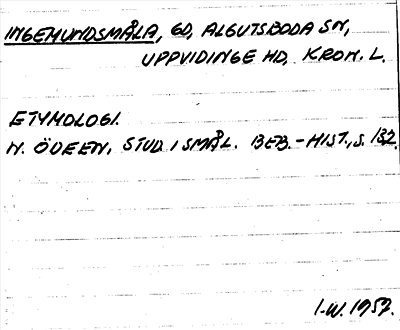 INGEMUNDSMÅLA, GD, ALGUTSBODA SN,
UPPVIDINGE HD, KRON. L.
ETYMOLOGI.
N. ÖDEEN, STUD. I SMÅL. BEB.-HIST., S. 132.
I.W. 1957.